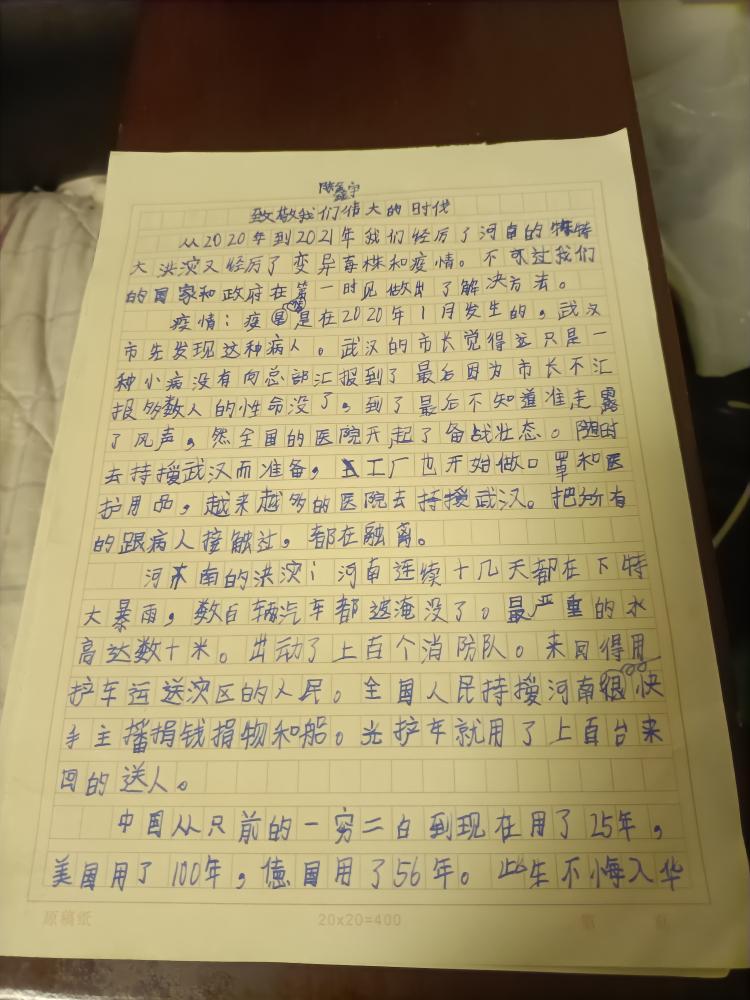 陈鑫宇
致敬我们伟大的时代
从2020年到2021年我们经历了河南的特
大洪灾又经历了变异毒株和疫情。不过我们
的国家和政府在第一时见做出了解决方法。
疫情:疫是在2020年1月发生的,武汉
市先发现这种病人。武汉的市长觉得这只是一
种小病没有向总部汇报到了最后因为市长不汇
报多数人的性命没了,到了最后不知道准走露
了风声,然全国的医院开起了备战壮态。随时
去持援武汉而准备,工厂也开始做口罩和医
护用品,越来越多的医院去持援武汉。把所有
的跟病人接触过,都在融离。
河南的洪灾:河南连续十几天都在下特
大暴雨,数百辆汽车都被淹没了。最严重的水
高达数十米。出动了上百个消防队。来回得用
护车运送灾区的人民。全国人民持援河南很快
手主播捐钱捐物和船。光护车就用了上百台来
回的送人。
中国从只前的一穷二白到现在用了25年,
美国用了100年,德国用了56年。此生不悔入华
原稿纸
20x20=400
第 页